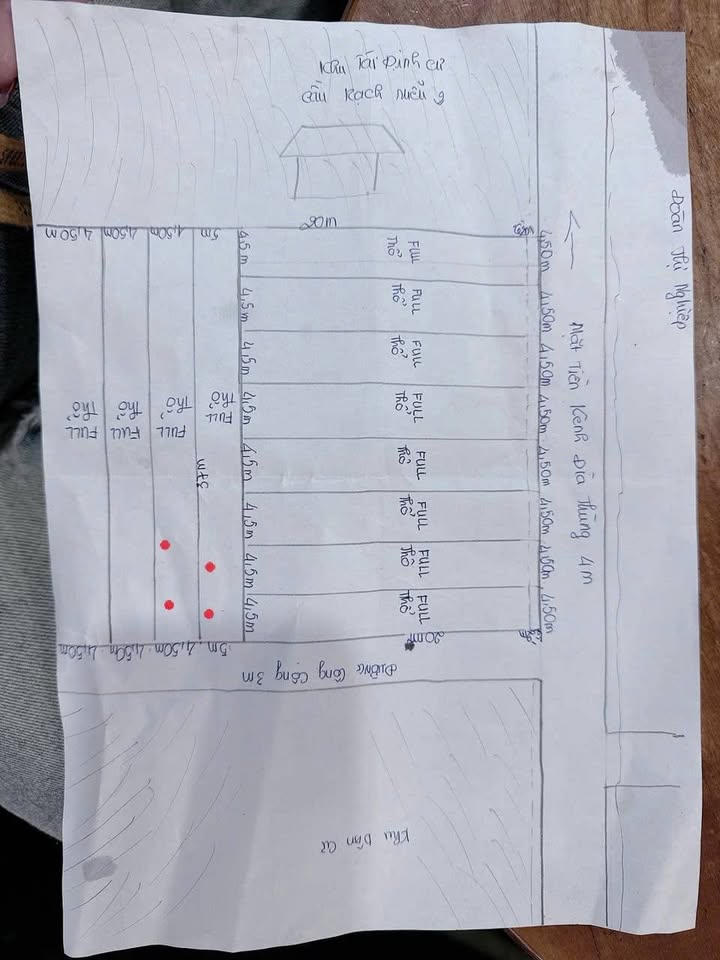 Khu Tái Định cư
Cầu Rạch Miễu 6
20m
Đoàn Thị Nghiệp
Mặt Tiền Kênh Đìa Thùng 4m
4,50m 4,50m 4,50m 4,50m 4,50m 4,50m 4,50m 4,50m
FULL Thổ
FULL Thổ
FULL Thổ
FULL Thổ
FULL Thổ
FULL Thổ
FULL Thổ
FULL Thổ
20m
4,5m 4,5m 4,5m 4,5m 4,5m 4,5m 4,5m 4,5m
5m 4,50m 4,50m 4,50m
FULL Thổ
FULL Thổ
FULL Thổ
FULL Thổ
37m
5m 4,50m 4,50m 4,50m
Đường Công Cộng 3m
Khu Dân Cư